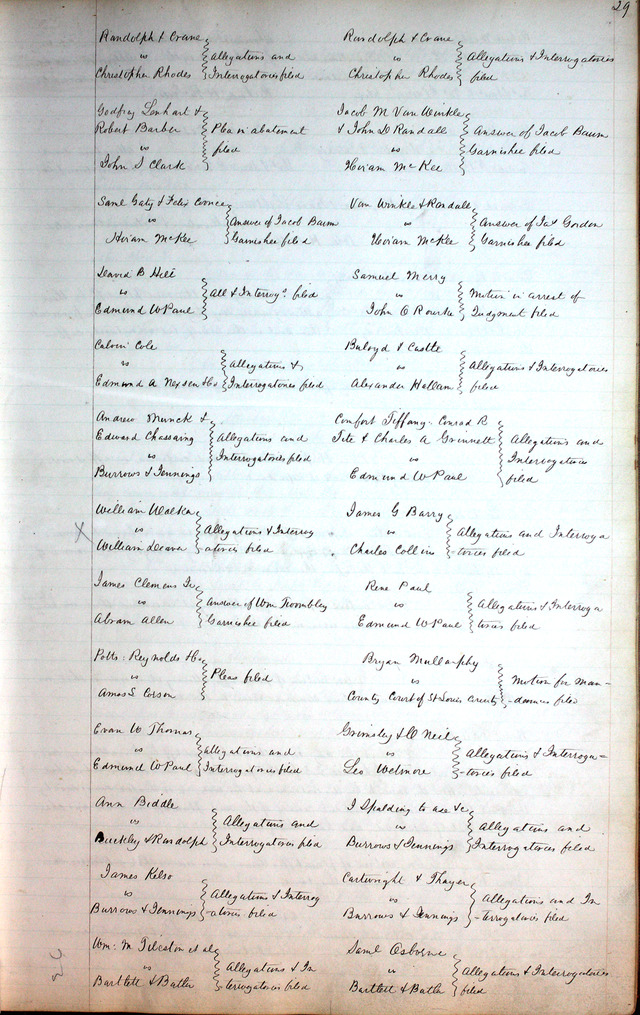 29
Randolph & Crane
vs
Christopher Rhodes
Allegations and
Interrogatories filed
Randolph & Crane
vs
Christopher Rhodes
Allegations & Interrogatories
filed
Godfrey Lenhart &
Robert Barber
vs
John S Clark
Plea in abatement
filed
Jacob M Van Winkle
& John D Randall
vs
Hiram McKee
Answer of Jacob Baum
Garnishee filed
Saml Gaty & Felix
vs
Hiram McKee
Answer of Jacob Baum
Garnishee filed
Van Winkle & Randall
vs
Hiram McKee
Answer of Jas Gordon
Garnishee filed
David B Hill
vs
Edmund W Paul
All & Interrogs filed
Samuel Merry
vs
John O Rourke
Motion in arrest of
Judgment filed
Calvin Cole
vs
Edmund A Nexsen & Co
Allegations &
Interrogatories filed
& Castle
vs
Alexander Hallam
Allegations & Interrogatories
filed
Andrew Munck &
Edward Chassaing
vs
Burrows & Jennings
Allegations and
Interrogatories filed
Comfort Tiffany Conrad R
Tite & Charles A Grinnett
vs
Edmund W Paul
Allegations and
Interrogatories
filed
X
William
vs
William Deaver
Allegations & Interrog
atories filed
James G Barry
vs
Charles Collins
Allegations and Interroga
tories filed
James Clemens Jr
vs
Abram Allen
Answer of Wm Trombley
Garnishee filed
Rene Paul
vs
Edmund W Paul
Allegations & Interroga
tories filed
Potts Reynolds & Co
vs
Amos S Corson
Pleas filed
Bryan Mullanphy
vs
County Court of St Louis County
Motion for man-
damus filed
Evan W Thomas
vs
Edmund W Paul
Allegations and
Interrogatories filed
Grimsley & O Neil
vs
Leo Wetmore
Allegations & Interroga=
-tories filed
Ann Biddle
vs
Buckley & Randolph
Allegations and
Interrogatories filed
J Spalding to use &c
vs
Burrows & Jennings
Allegations and
Interrogatories filed
James Kelso
vs
Burrows & Jennings
Allegations & Interrog
-atories filed
Cartwright & Thayer
vs
Burrows & Jennings
Allegations and In
-terrogatories filed
Wm M Tileston et al
vs
Bartlett & Butler
Allegations & In
-terrogatories filed
Saml Osborne
vs
Bartlett & Butler
Allegations & Interrogatories
filed